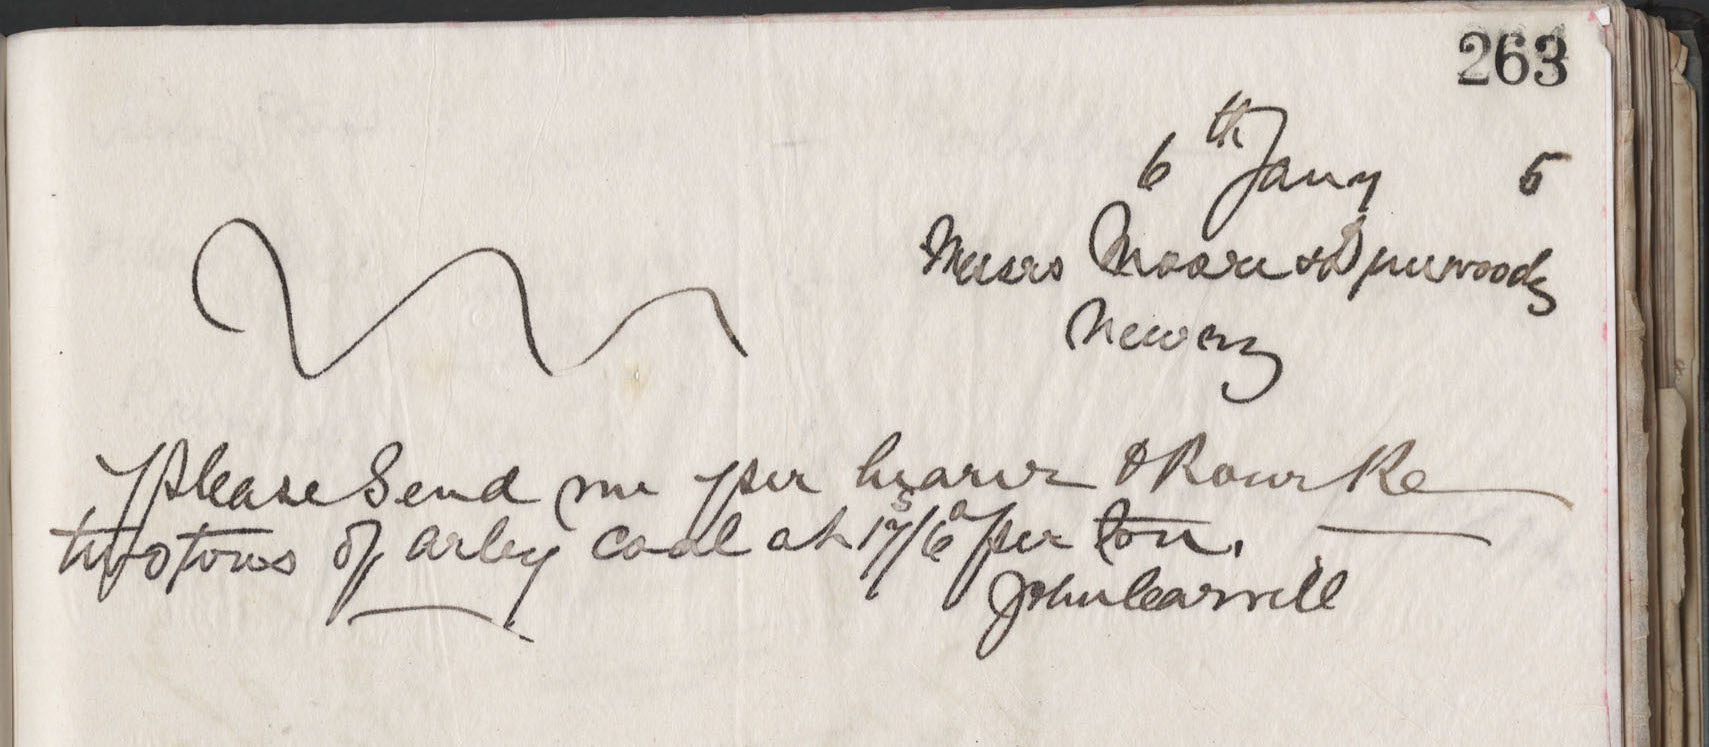 263
6th Jany 5
Messrs Moore & Dinwoody
Newry
Please Send me per bearer O Rourke
two tons of arley Coal at 17s/6d per ton.
John Carvill